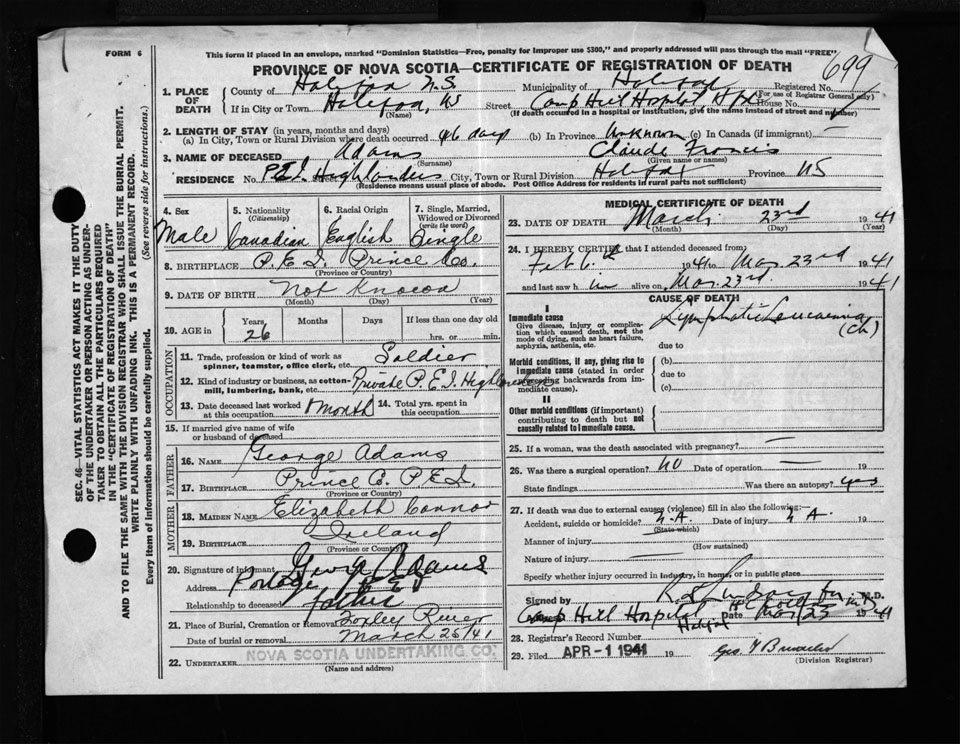 FORM 6
This form if placed in an envelope, marked "Dominion Statistics—Free, penalty for improper use $300," and properly addressed will pass through the mail "FREE"
PROVINCE OF NOVA SCOTIA—CERTIFICATE OF REGISTRATION OF DEATH
699
1. PLACE OF DEATH
County of Halifax N.S. Municipality of Halifax Registered No.
(For use of Registrar General only)
If in City or Town Halifax, NS Street Camp Hill Hospital, Hfx House No.
(Name) (If death occurred in a hospital or institution, give the name instead of street and number)
2. LENGTH OF STAY (in years, months and days)
(a) In City, Town or Rural Division where death occurred 46 days (b) In Province Unknown (c) In Canada (if immigrant) —
3. NAME OF DECEASED Adams Claude Francis
(Surname) (Given name or names)
RESIDENCE No. P.E.I. Street Highlanders City, Town or Rural Division Halifax Province NS
(Residence means usual place of abode. Post Office Address for residents in rural parts not sufficient)
SEC. 46—VITAL STATISTICS ACT MAKES IT THE DUTY
OF THE UNDERTAKER OR PERSON ACTING AS UNDER-
TAKER TO OBTAIN ALL THE PARTICULARS REQUIRED
IN THE "CERTIFICATE OF REGISTRATION OF DEATH"
AND TO FILE THE SAME WITH THE DIVISION REGISTRAR WHO SHALL ISSUE THE BURIAL PERMIT.
WRITE PLAINLY WITH UNFADING INK. THIS IS A PERMANENT RECORD.
Every item of information should be carefully supplied. (See reverse side for instructions.)
4. Sex 5. Nationality (Citizenship) 6. Racial Origin 7. Single, Married, Widowed or Divorced (write the word)
Male Canadian English Single
8. BIRTHPLACE P.E.I. Prince Co.
(Province or Country)
9. DATE OF BIRTH Not Known
(Month) (Day) (Year)
10. AGE in Years Months Days If less than one day old
26 hrs. or min.
OCCUPATION
11. Trade, profession or kind of work as spinner, teamster, office clerk, etc. Soldier
12. Kind of industry or business, as cotton-mill, lumbering, bank, etc. Private P.E.I. Highlanders
13. Date deceased last worked at this occupation month 14. Total yrs. spent in this occupation
15. If married give name of wife or husband of deceased
FATHER
16. NAME George Adams
17. BIRTHPLACE Prince Co. P.E.I.
(Province or Country)
MOTHER
18. MAIDEN NAME Elizabeth Connor
19. BIRTHPLACE Ireland
(Province or Country)
20. Signature of informant George Adams
Address Portage P E I
Relationship to deceased Father
21. Place of Burial, Cremation or Removal River
Date of burial or removal March 26/41
22. UNDERTAKER NOVA SCOTIA UNDERTAKING CO.
(Name and address)
MEDICAL CERTIFICATE OF DEATH
23. DATE OF DEATH March 23rd 1941
(Month) (Day) (Year)
24. I HEREBY CERTIFY that I attended deceased from:
Feb 6th 1941 to Mar. 23rd 1941
and last saw him alive on Mar. 23rd 1941
CAUSE OF DEATH
I
Immediate cause Lymphatic Leucaemia (ch)
Give disease, injury or complication which caused death, not the mode of dying, such as heart failure, asphyxia, asthenia, etc.
due to
Morbid conditions, if any, giving rise to immediate cause (stated in order proceeding backwards from immediate cause).
(b)
due to
(c)
II
Other morbid conditions (if important) contributing to death but not causally related to immediate cause.
25. If a woman, was the death associated with pregnancy? —
26. Was there a surgical operation? No Date of operation — 19
State findings Was there an autopsy? yes
27. If death was due to external causes (violence) fill in also the following:—
Accident, suicide or homicide? N.A. Date of injury N A. 19
(State which)
Manner of injury
(How sustained)
Nature of injury
Specify whether injury occurred in industry, in home, or in public place
Signed by M.D.
Camp Hill Hospital Date Mar 23 1941
Halifax
28. Registrar's Record Number
29. Filed APR - 1 1941 19
(Division Registrar)